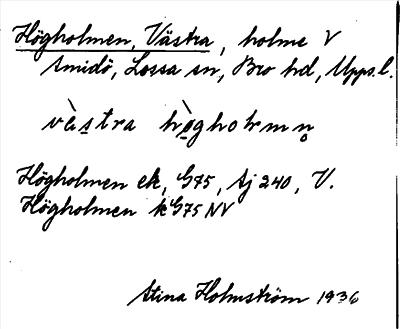 Högholmen, Västra, holme V
Smidö, Lossa sn, Bro hd, Upps.l.
västra högholmen
Högholmen ek, G75, Aj 240, V.
Högholmen k G75 NV
Stina Holmström 1936